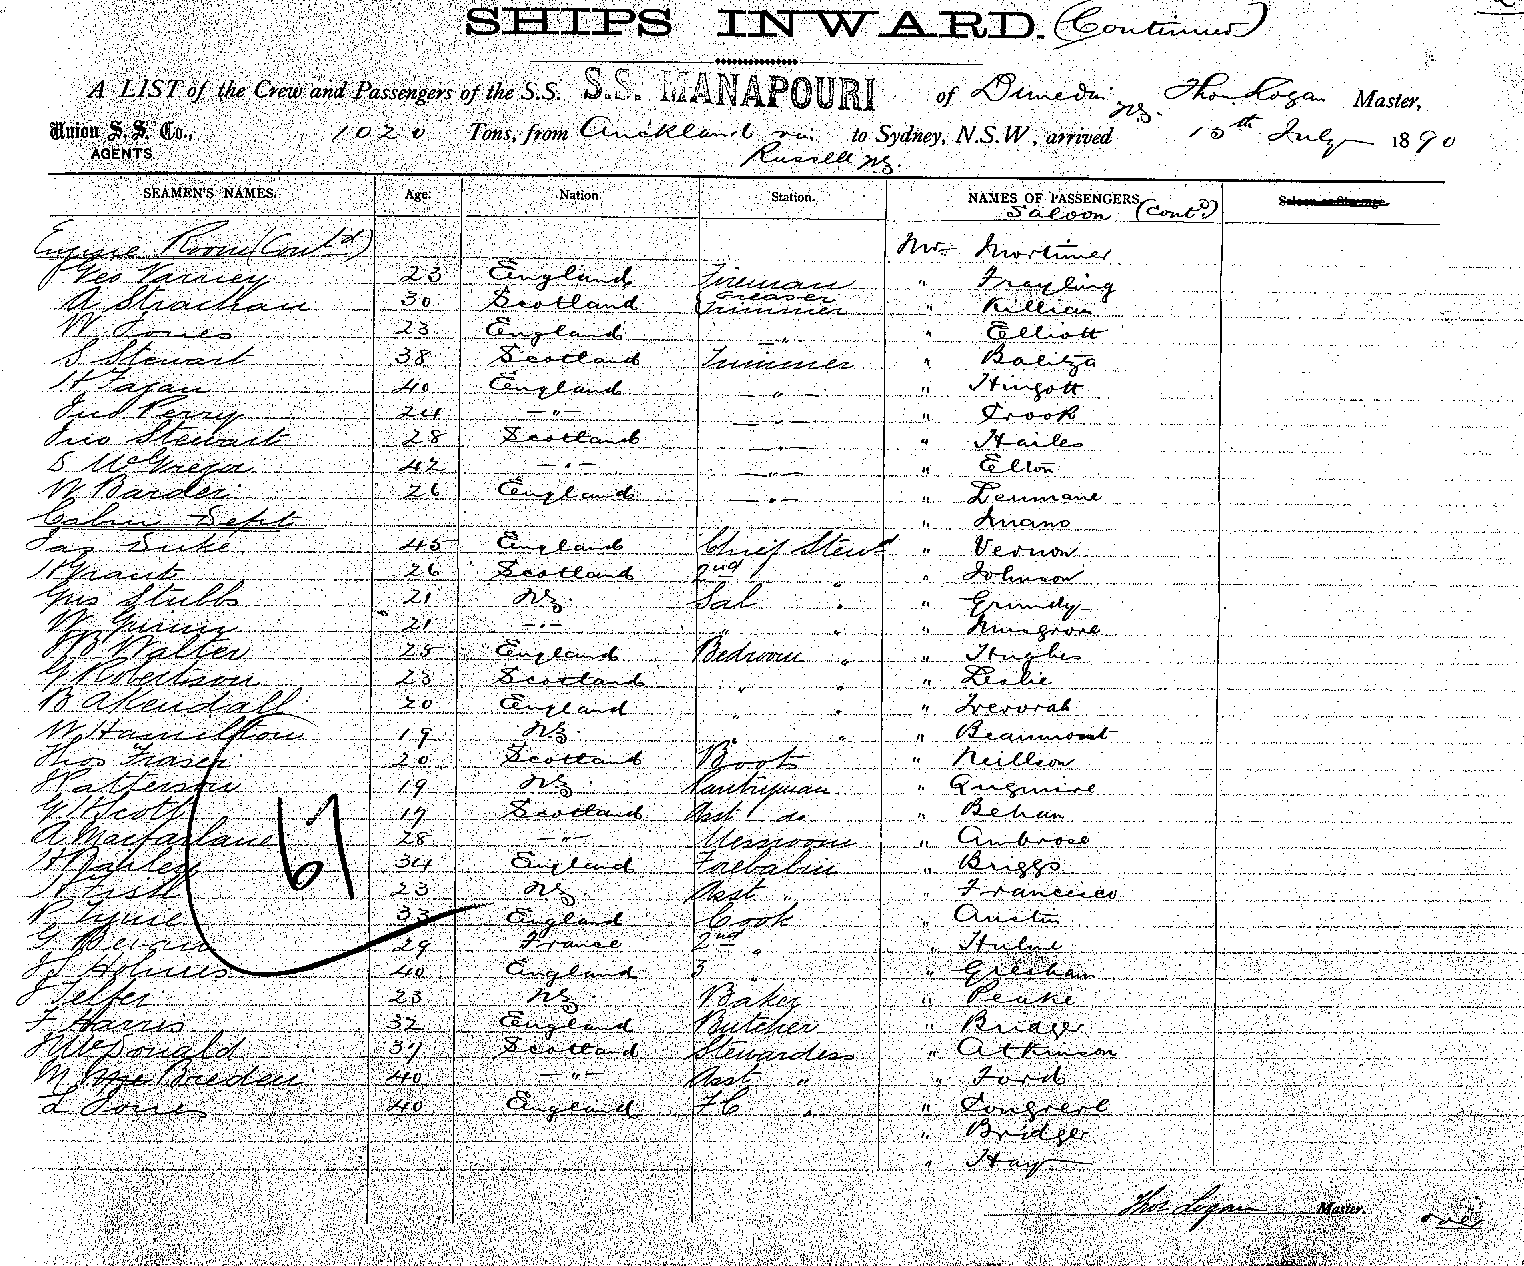 SHIPS INWARD. (Continued)
A LIST of the Crew and Passengers of the S.S. S.S. MANAPOURI of Dunedin NZ. Thos Logan Master,
Union S. S. Co.,
AGENTS
1020 Tons, from Auckland via Russell NZ. to Sydney, N.S.W, arrived 15th July 1890
SEAMEN'S NAMES. Age. Nation. Station. NAMES OF PASSENGERS Saloon or Steerage.
Saloon (Contd)
Engine Room (Contd) Mr. Mortimer
Geo Varney 23 England Fireman " Frayling
A Strachan 30 Scotland Greaser Trimmer " Killian
W Jones 23 England " " Elliott
S Stewart 38 Scotland Trimmer "
H Fagan 40 England " " Hingott
Jno Perry 24 " " " Crook
Jno Stewart 28 Scotland " " Hailes
S McGregor 42 " " " Elton
W Barder 26 England " "
Cabin Dept "
Jas Duke 45 England Chief Stewd " Vernon
H Grant 26 Scotland 2nd " " Johnson
Gus Stubbs 21 NZ. Sal " " Grundy
W 21 " " " " Musgrove
Walter 25 England Bedroom " " Hughes
G Robertson 23 Scotland " " " Leslie
B A Kendall 20 England " " "
W Hamilton 19 NZ. " " " Beaumont
Thos Fraser 20 Scotland Boots " Neillson
J Patterson 19 NZ. Pantryman "
G H Scott 19 Scotland Asst do " Behan
A Macfarlane 28 " Messroom " Ambrose
H 34 England Forecabin " Briggs
H Fish 23 NZ. Asst " " Francesco
P 33 England Cook " Austin
G Bevan 29 France 2nd " " Hulme
J S Holmes 40 England 3 " " Gresham
J Telfer 23 NZ Baker " Peake
F Harris 32 England Butcher " Bridger
McDonald 37 Scotland Stewardess " Atkinson
M Breden 40 " Asst " " Ford
L Jones 40 England FC " " Congreve
" Bridger
" Hay
67
Thos Logan Master.